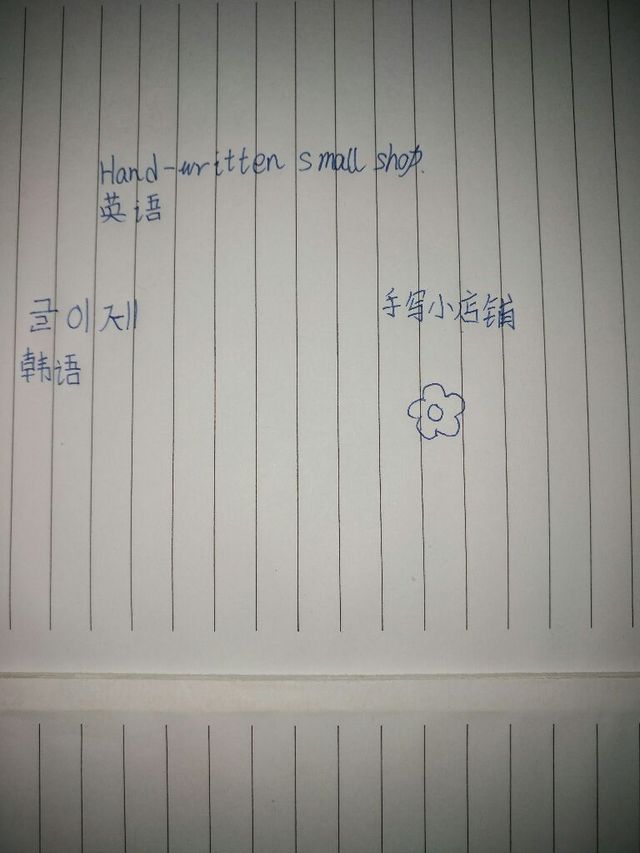 Hand-written small shop.
英语
글이 제
韩语
手写小店铺